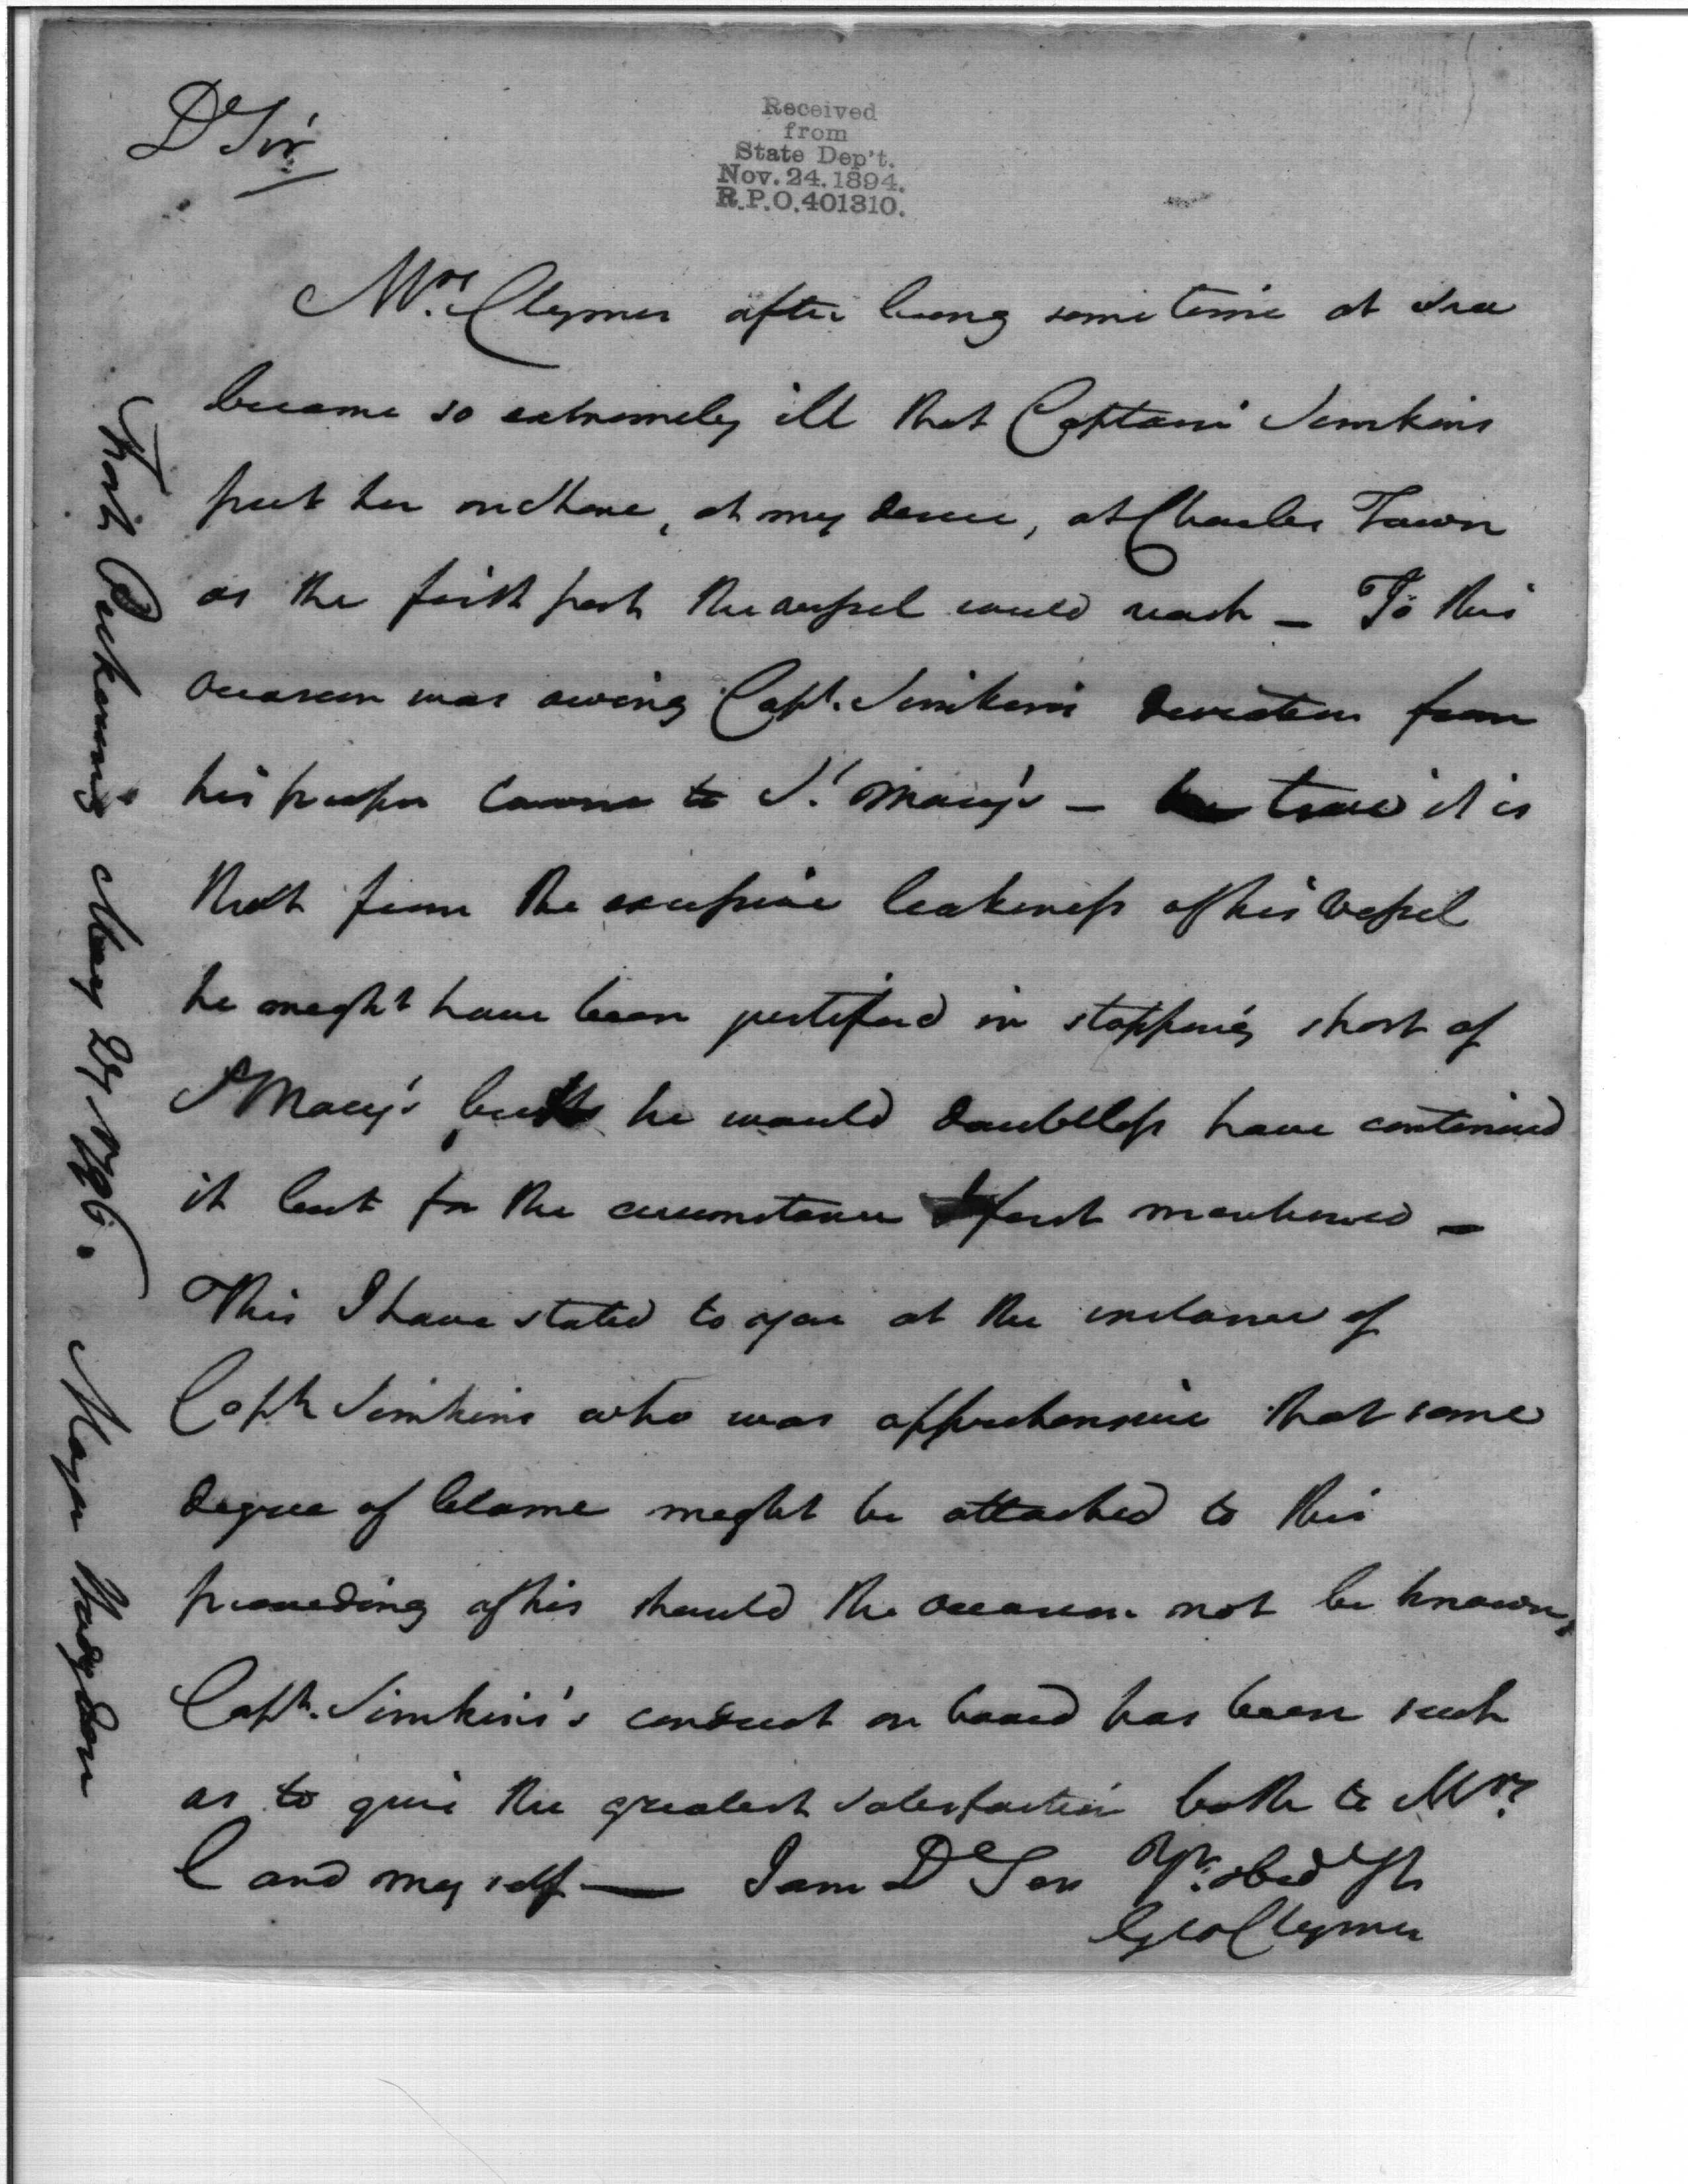 Dr Sir
Received
from
State Dep't.
Nov. 24. 1894.
R.P.O. 401310.
Mrs. Clymer after being some time at Sea
became so extremely ill that Captain Simkins
put her on shore, at my desire, at Charles Town
as the first port the vessel could reach – To this
occasion was owing Capt. Simkins deviation from
his proper course to St. Mary's – true it is
that from the excessive leakeness of his Vessel
he might have been justified in stopping short of
St Mary's but he would doubtless have continued
it but for the circumstance first mentioned –
This I have stated to you at the instance of
Capt Simkins who was apprehensive that some
degree of blame might be attached to this
proceeding of his should the occasion not be known,
Capt. Simkins's conduct on board has been such
as to give the greatest satisfaction both to Mrs.
C and my self — I am Dr Sir Yr. obed St
Geo Clymer
Fort Pickering May 29, 1796. Major Hodgdon